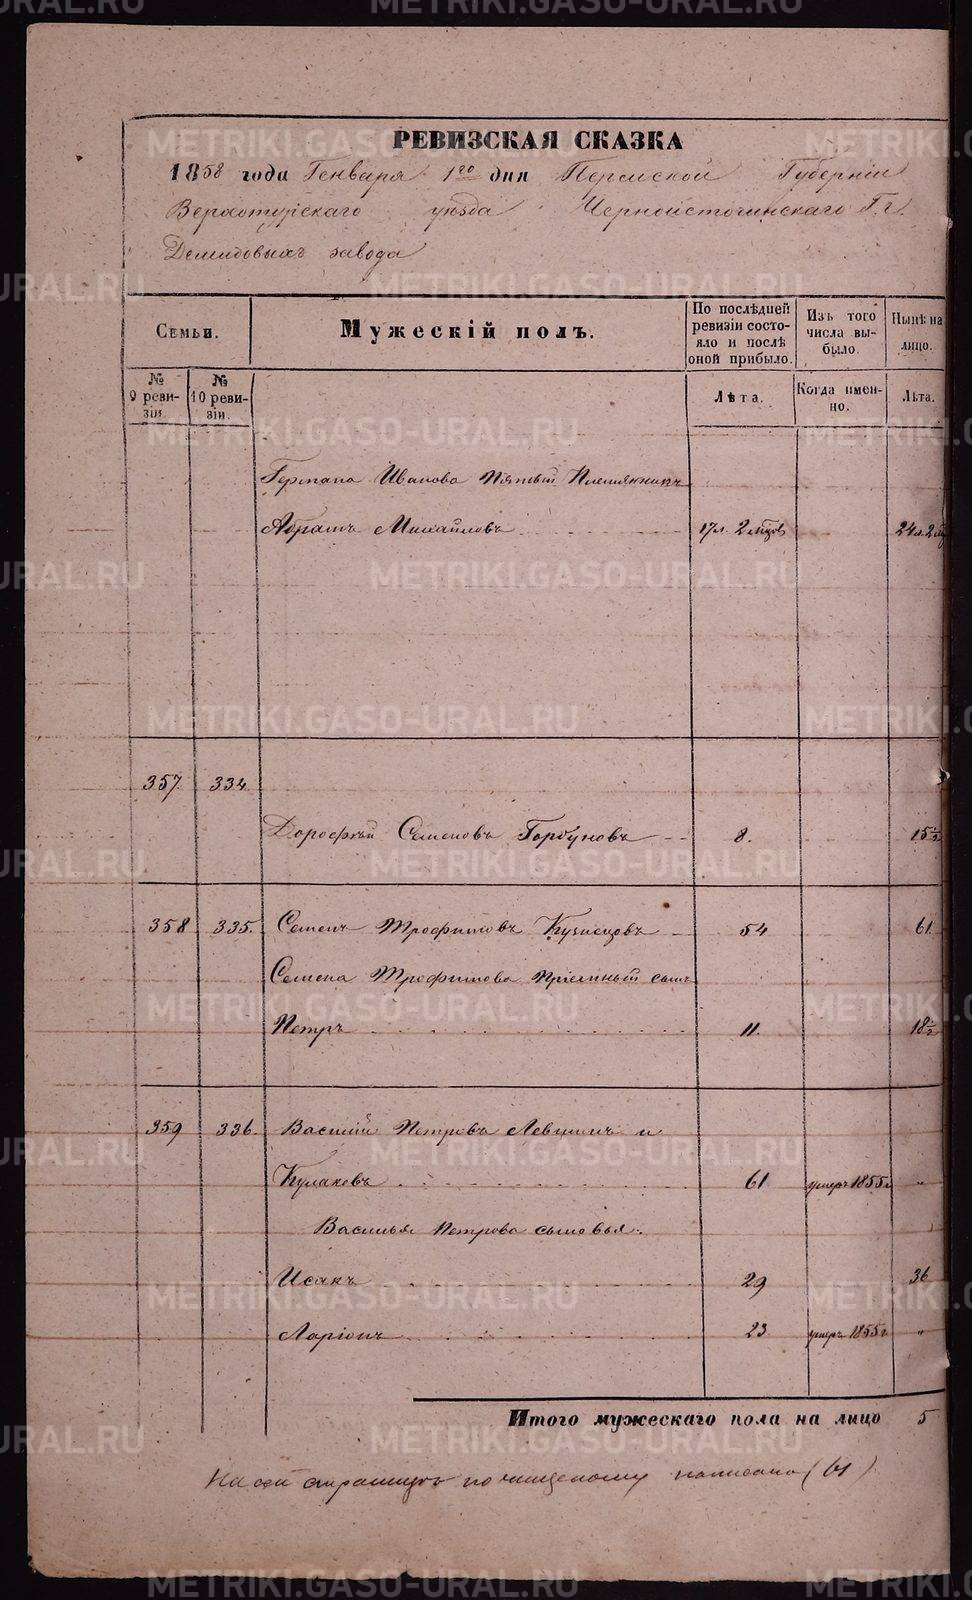 РЕВИЗСКАЯ СКАЗКА
1858 года Генваря 1го дня Пермской Губернiи
Верхотурскаго уѣзда Черноисточинскаго Г.г.
Демидовыхъ завода
Семьи.
Мужескiй полъ.
По послѣдней ревизiи состояло и послѣ оной прибыло.
Изъ того числа выбыло.
Нынѣ на лицо.
№ 9 ревизiи.
№ 10 ревизiи.
Лѣта.
Когда именно.
Лѣта.
Германа Иванова Пятый Племянникъ
Абрамъ Михайловъ 17л. 2 мѣсцовъ 24 л. 2
357 334
Дорофѣй Семеновъ Горбуновъ 8. 15½
358 335. Семенъ Трофимовъ Кузнецовъ 54 61
Семена Трофимова Прiемный сынъ
Петръ 11. 18½
359 336. Василiй Петровъ Левшинъ и
Кулаковъ 61 умеръ 1855 г. "
Василья Петрова сыновья:
Исакъ 29 36
Ларiонъ 23 умеръ 1855 г. "
Итого мужескаго пола на лицо 5
На сей страницѣ по чищеному написано (61)
METRIKI.GASO-URAL.RU